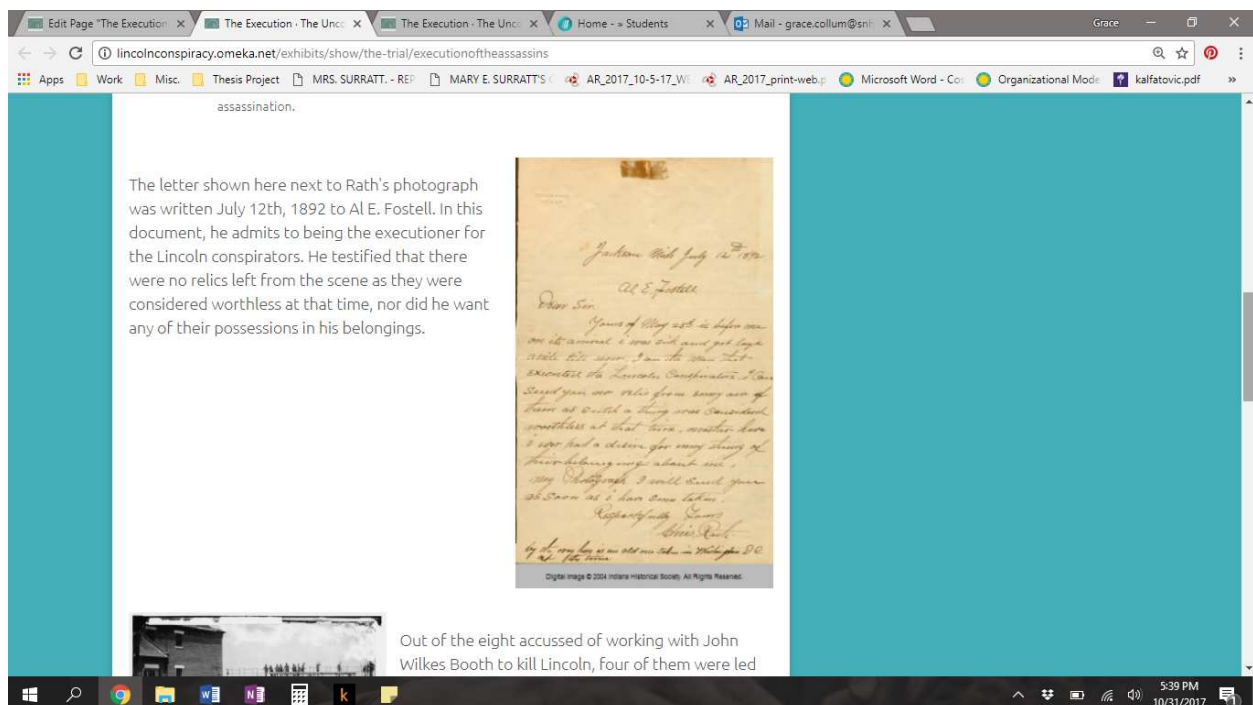 Edit Page "The Execution
The Execution · The Unco
The Execution · The Unco
Home - » Students
Mail - grace.collum@snh
Grace
lincolnconspiracy.omeka.net/exhibits/show/the-trial/executionoftheassassins
Apps
Work
Misc.
Thesis Project
MRS. SURRATT. - REP
MARY E. SURRATT'S
AR_2017_10-5-17_WE
AR_2017_print-web.p
Microsoft Word - Co
Organizational Mode
kalfatovic.pdf
»
assassination.
The letter shown here next to Rath's photograph
was written July 12th, 1892 to Al E. Fostell. In this
document, he admits to being the executioner for
the Lincoln conspirators. He testified that there
were no relics left from the scene as they were
considered worthless at that time, nor did he want
any of their possessions in his belongings.
Jackson Mich July 12th 1892
Al E Fostell
Dear Sir
Yours of May 25th is before me
on its arrival i was sick and got laye
aside till now. I am the man that
executed the Lincoln Conspirators. I Can
Send you no relic from enny one of
them as sutch a thing was Considerd
worthless at that time, neither have
i ever had a desire for enny thing of
their belongings about me.
my Photograph I will Send you
as Soon as i have Some taken.
Respectfully Yours
Chris Rath
by the way here is an old one taken in Washington D C
at the time
Digital Image © 2004 Indiana Historical Society. All Rights Reserved.
Out of the eight accussed of working with John
Wilkes Booth to kill Lincoln, four of them were led
5:39 PM
10/31/2017